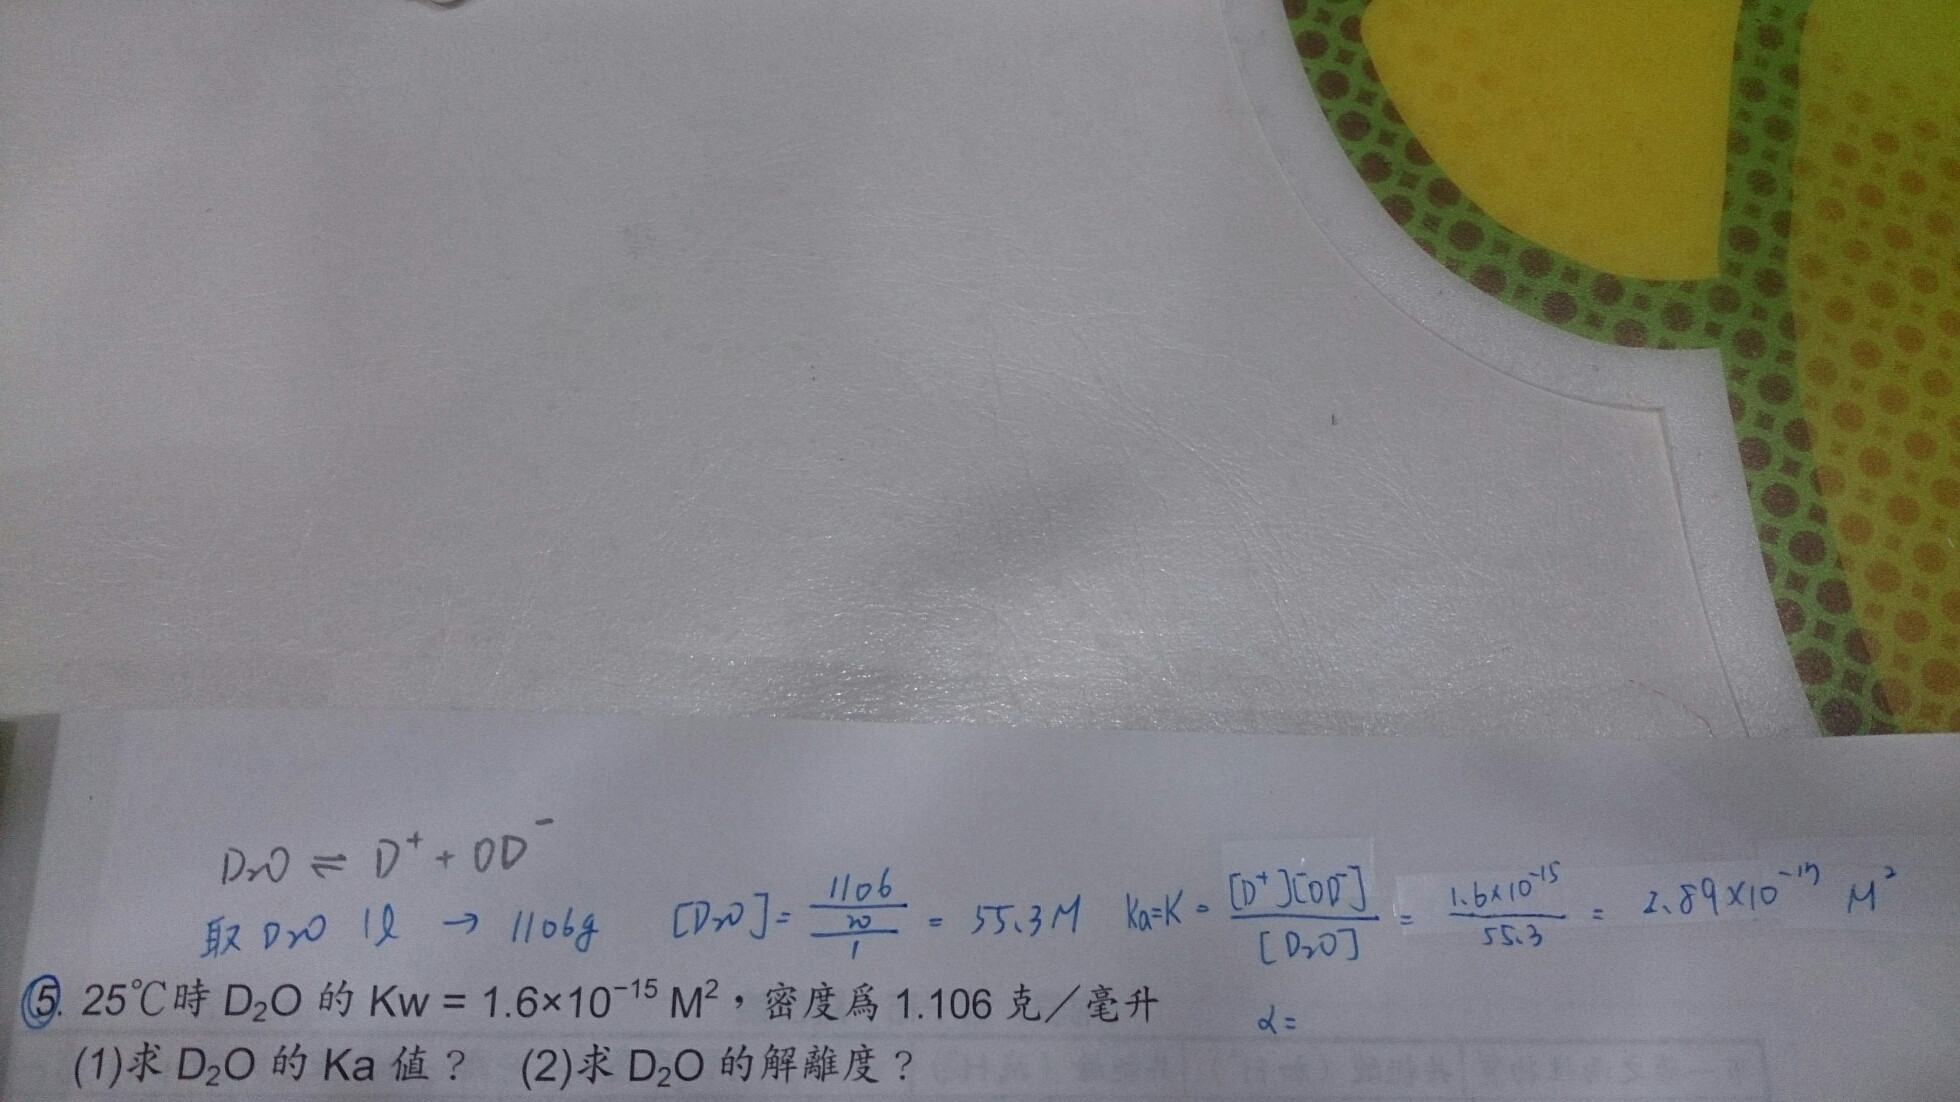 D₂O ⇌ D⁺ + OD⁻
取 D₂O 1ℓ → 1106g [D₂O] = 1106/20/1 = 55.3M Ka=K = [D⁺][OD⁻]/[D₂O] = 1.6×10⁻¹⁵/55.3 = 2.89×10⁻¹⁷ M²
⑤. 25℃時 D₂O 的 Kw = 1.6×10⁻¹⁵ M²,密度為 1.106 克/毫升
α =
(1)求 D₂O 的 Ka 值? (2)求 D₂O 的解離度?